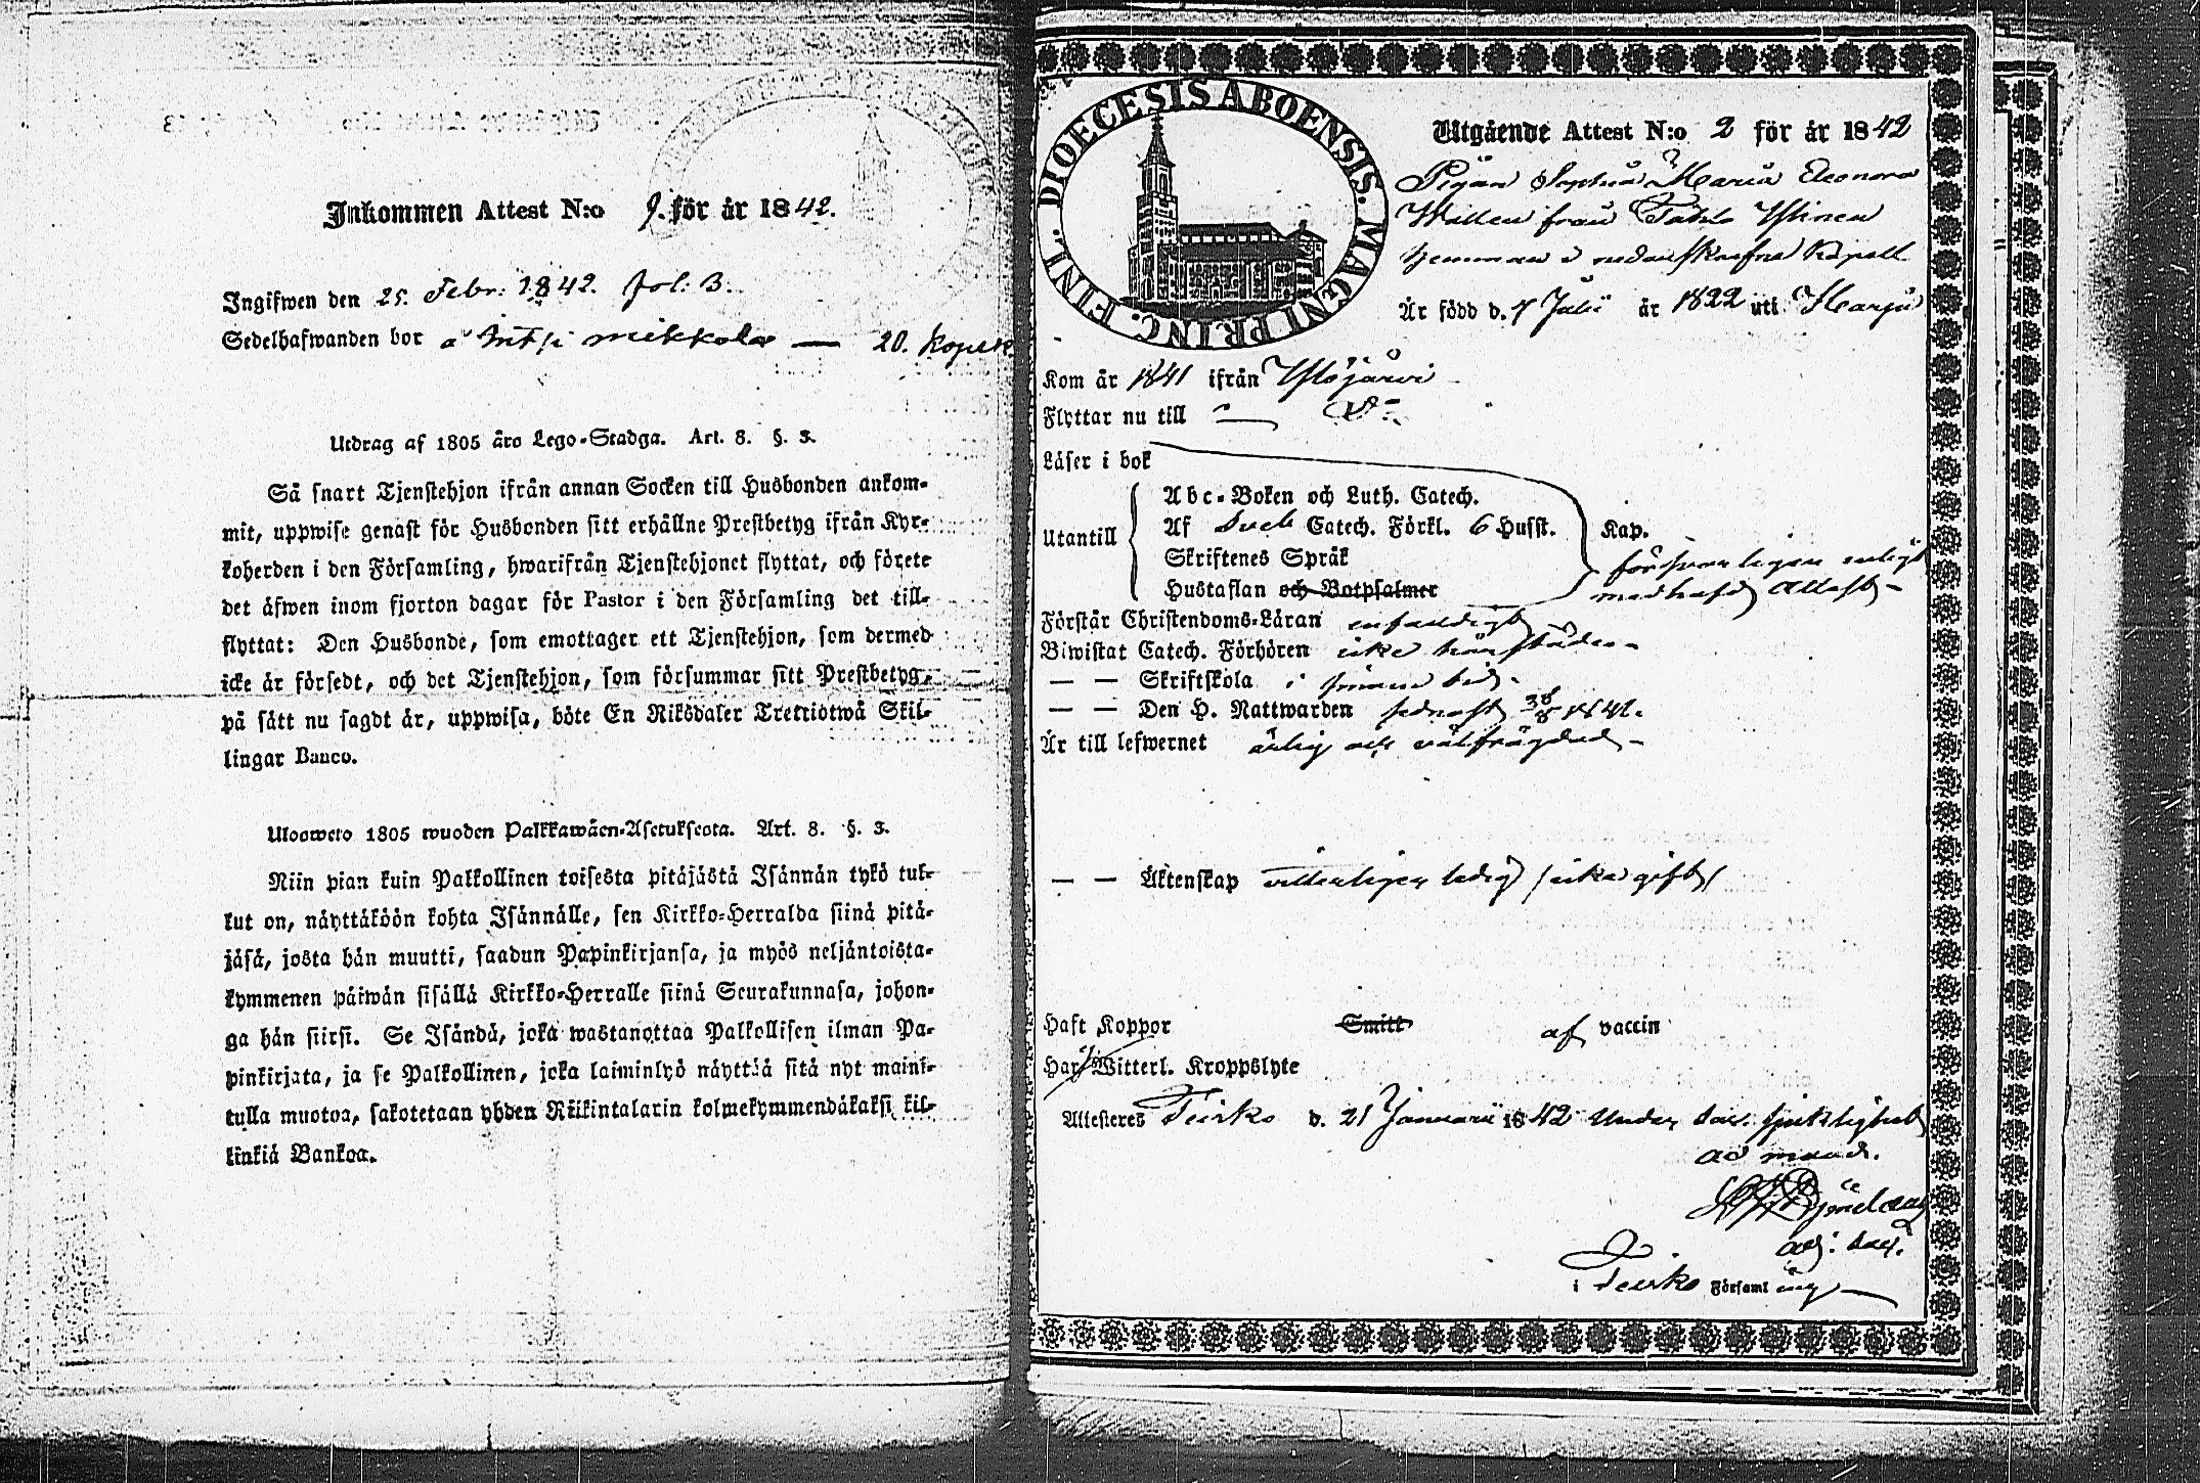 Inkommen Attest N:o 9. för år 1842.
Ingifwen den 25. Febr: 1842. fol: 3.
Sedelhafwanden bor å mikkola — 20. kopek
Utdrag af 1805 års Lego-Stadga. Art. 8. §. 3.
Så snart Tjenstehjon ifrån annan Socken till Husbonden ankom-
mit, uppwise genast för Husbonden sitt erhållne Prestbetyg ifrån Kyr-
koherden i den Församling, hwarifrån Tjenstehjonet flyttat, och förete
det äfwen inom fjorton dagar för Pastor i den Församling det till-
flyttat: Den Husbonde, som emottager ett Tjenstehjon, som dermed
icke är försedt, och det Tjenstehjon, som försummar sitt Prestbetyg,
på sätt nu sagdt är, uppwisa, böte En Riksdaler Trettiotwå Skil-
lingar Banco.
Ulosweto 1805 wuoden Palkkawäen-Asetuksesta. Art. 8. §. 3.
Niin pian kuin Palkollinen toisesta pitäjästä Isännän tykö tul-
lut on, näyttäköön kohta Isännälle, sen Kirkko-Herralda siinä pitä-
jäsä, josta hän muutti, saadun Papinkirjansa, ja myös neljäntoista-
kymmenen päiwän sisällä Kirkko-Herralle siinä Seurakunnasa, johon-
ga hän siirsi. Se Isändä, joka wastanottaa Palkollisen ilman Pa-
pinkirjata, ja se Palkollinen, joka laiminlyö näyttää sitä nyt maini-
tulla muotoa, sakotetaan yhden Riikintalarin kolmekymmendäkaksi kil-
linkiä Bankoa.
DIOECESIS ABOENSIS. MAGNI PRINC. FINL.
Utgående Attest N:o 2 för år 1842
Pigan Sophia Maria Eleonora
Wallen från Ylinen
hemman i nedanskrefne Kapell
Är född d. 7 Julii år 1822 uti Harju
Kom år 1841 ifrån Ylöjärvi
Flyttar nu till D:o
Läser i bok
Utantill
Abc-Boken och Luth. Catech.
Af Sveb Catech. Förkl. 6 Husst. Kap.
Skriftenes Språk
Hustaflan och Botpsalmer
försvarligen enligt
medhafd Attest
Förstår Christendoms-Läran enfaldigt
Biwistat Catech. Förhören icke härstädes
— — Skriftskola i sinom tid
— — Den H. Nattwarden sednast 1841.
Är till lefwernet ärlig och välfrägdad
— — Äktenskap vitterligen ledig icke gift
Haft Koppor Smitt af vaccin
Har Witterl. Kroppslyte
Attesteres Teisko d. 21 Januarii 1842 under Sac. fruktlighet
ad mand.
adj: Sac.
i Teisko Församling